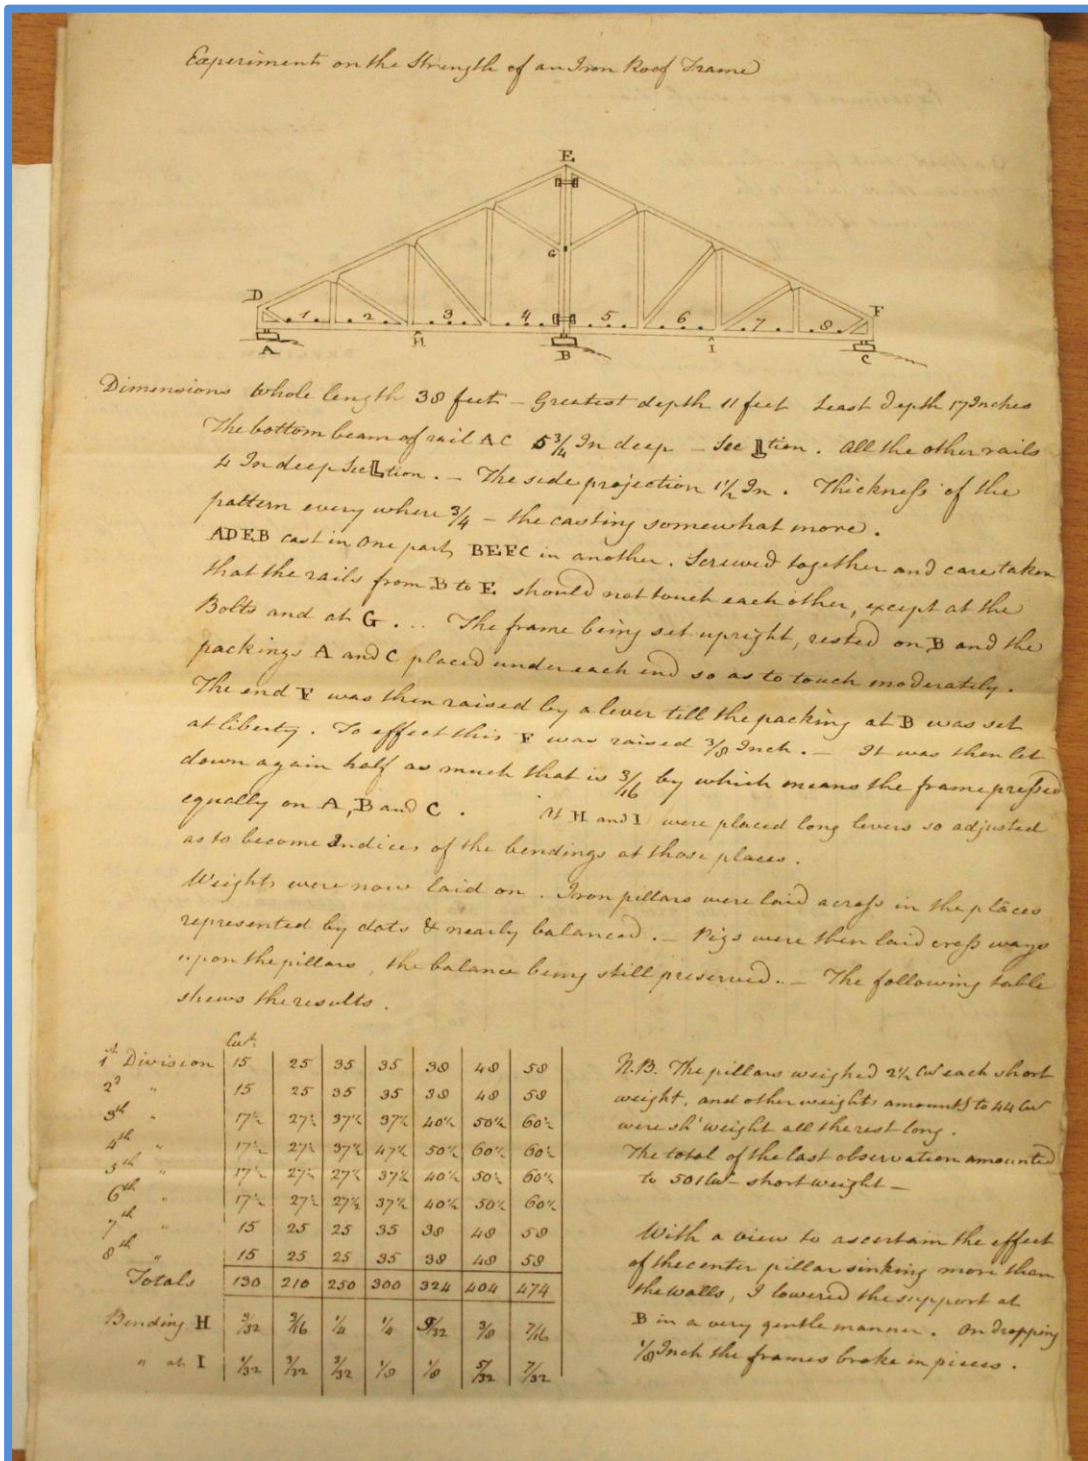 Experiments on the Strength of an Iron Roof Frame
E
G
D
F
1 2 3 4 5 6 7 8
A H B I C
Dimensions Whole length 38 feet – Greatest depth 11 feet Least depth 17 Inches
The bottom beam of rail AC 5 3/4 In deep – Sec L tion. All the other rails
4 In deep Sec L tion. – The side projection 1 1/2 In. Thickness of the
pattern every where 3/4 – the casting somewhat more.
ADEB cast in one part, BEFC in another. Screwed together and care taken
that the rails from B to E should not touch each other, except at the
Bolts and at G ... The frame being set upright, rested on B and the
packings A and C placed under each end so as to touch moderately.
The end F was then raised by a lever till the packing at B was set
at liberty. To effect this F was raised 3/8 Inch. – It was then let
down again half as much that is 3/16 by which means the frame pressed
equally on A, B and C. At H and I were placed long levers so adjusted
as to become Indices of the bendings at those places.
Weights were now laid on. Iron pillars were laid across in the places
represented by dots & nearly balanced. – Pigs were then laid cross ways
upon the pillars, the balance being still preserved. – The following table
shews the results.
Cwt.
1st Division 15 25 35 35 38 48 58
2d " 15 25 35 35 38 48 58
3th " 17 1/2 27 1/2 37 1/2 37 1/2 40 1/2 50 1/2 60 1/2
4th " 17 1/2 27 1/2 37 1/2 47 1/2 50 1/2 60 1/2 60 1/2
5th " 17 1/2 27 1/2 27 1/2 37 1/2 40 1/2 50 1/2 60 1/2
6th " 17 1/2 27 1/2 27 1/2 37 1/2 40 1/2 50 1/2 60 1/2
7th " 15 25 25 35 38 48 58
8th " 15 25 25 35 38 48 58
Totals 130 210 250 300 324 404 474
Bending H 3/32 3/16 1/4 1/4 9/32 3/8 7/16
" at I 1/32 3/32 3/32 1/8 1/8 5/32 7/32
N.B. The pillars weighed 2 1/2 Cwt each short
weight, and other weights amounts to 44 Cwt
were sht weight all the rest long.
The total of the last observation amounted
to 501 Cwt short weight –
With a view to ascertain the effect
of the center pillar sinking more than
the walls, I lowered the support at
B in a very gentle manner. On dropping
1/8 Inch the frames broke in pieces.